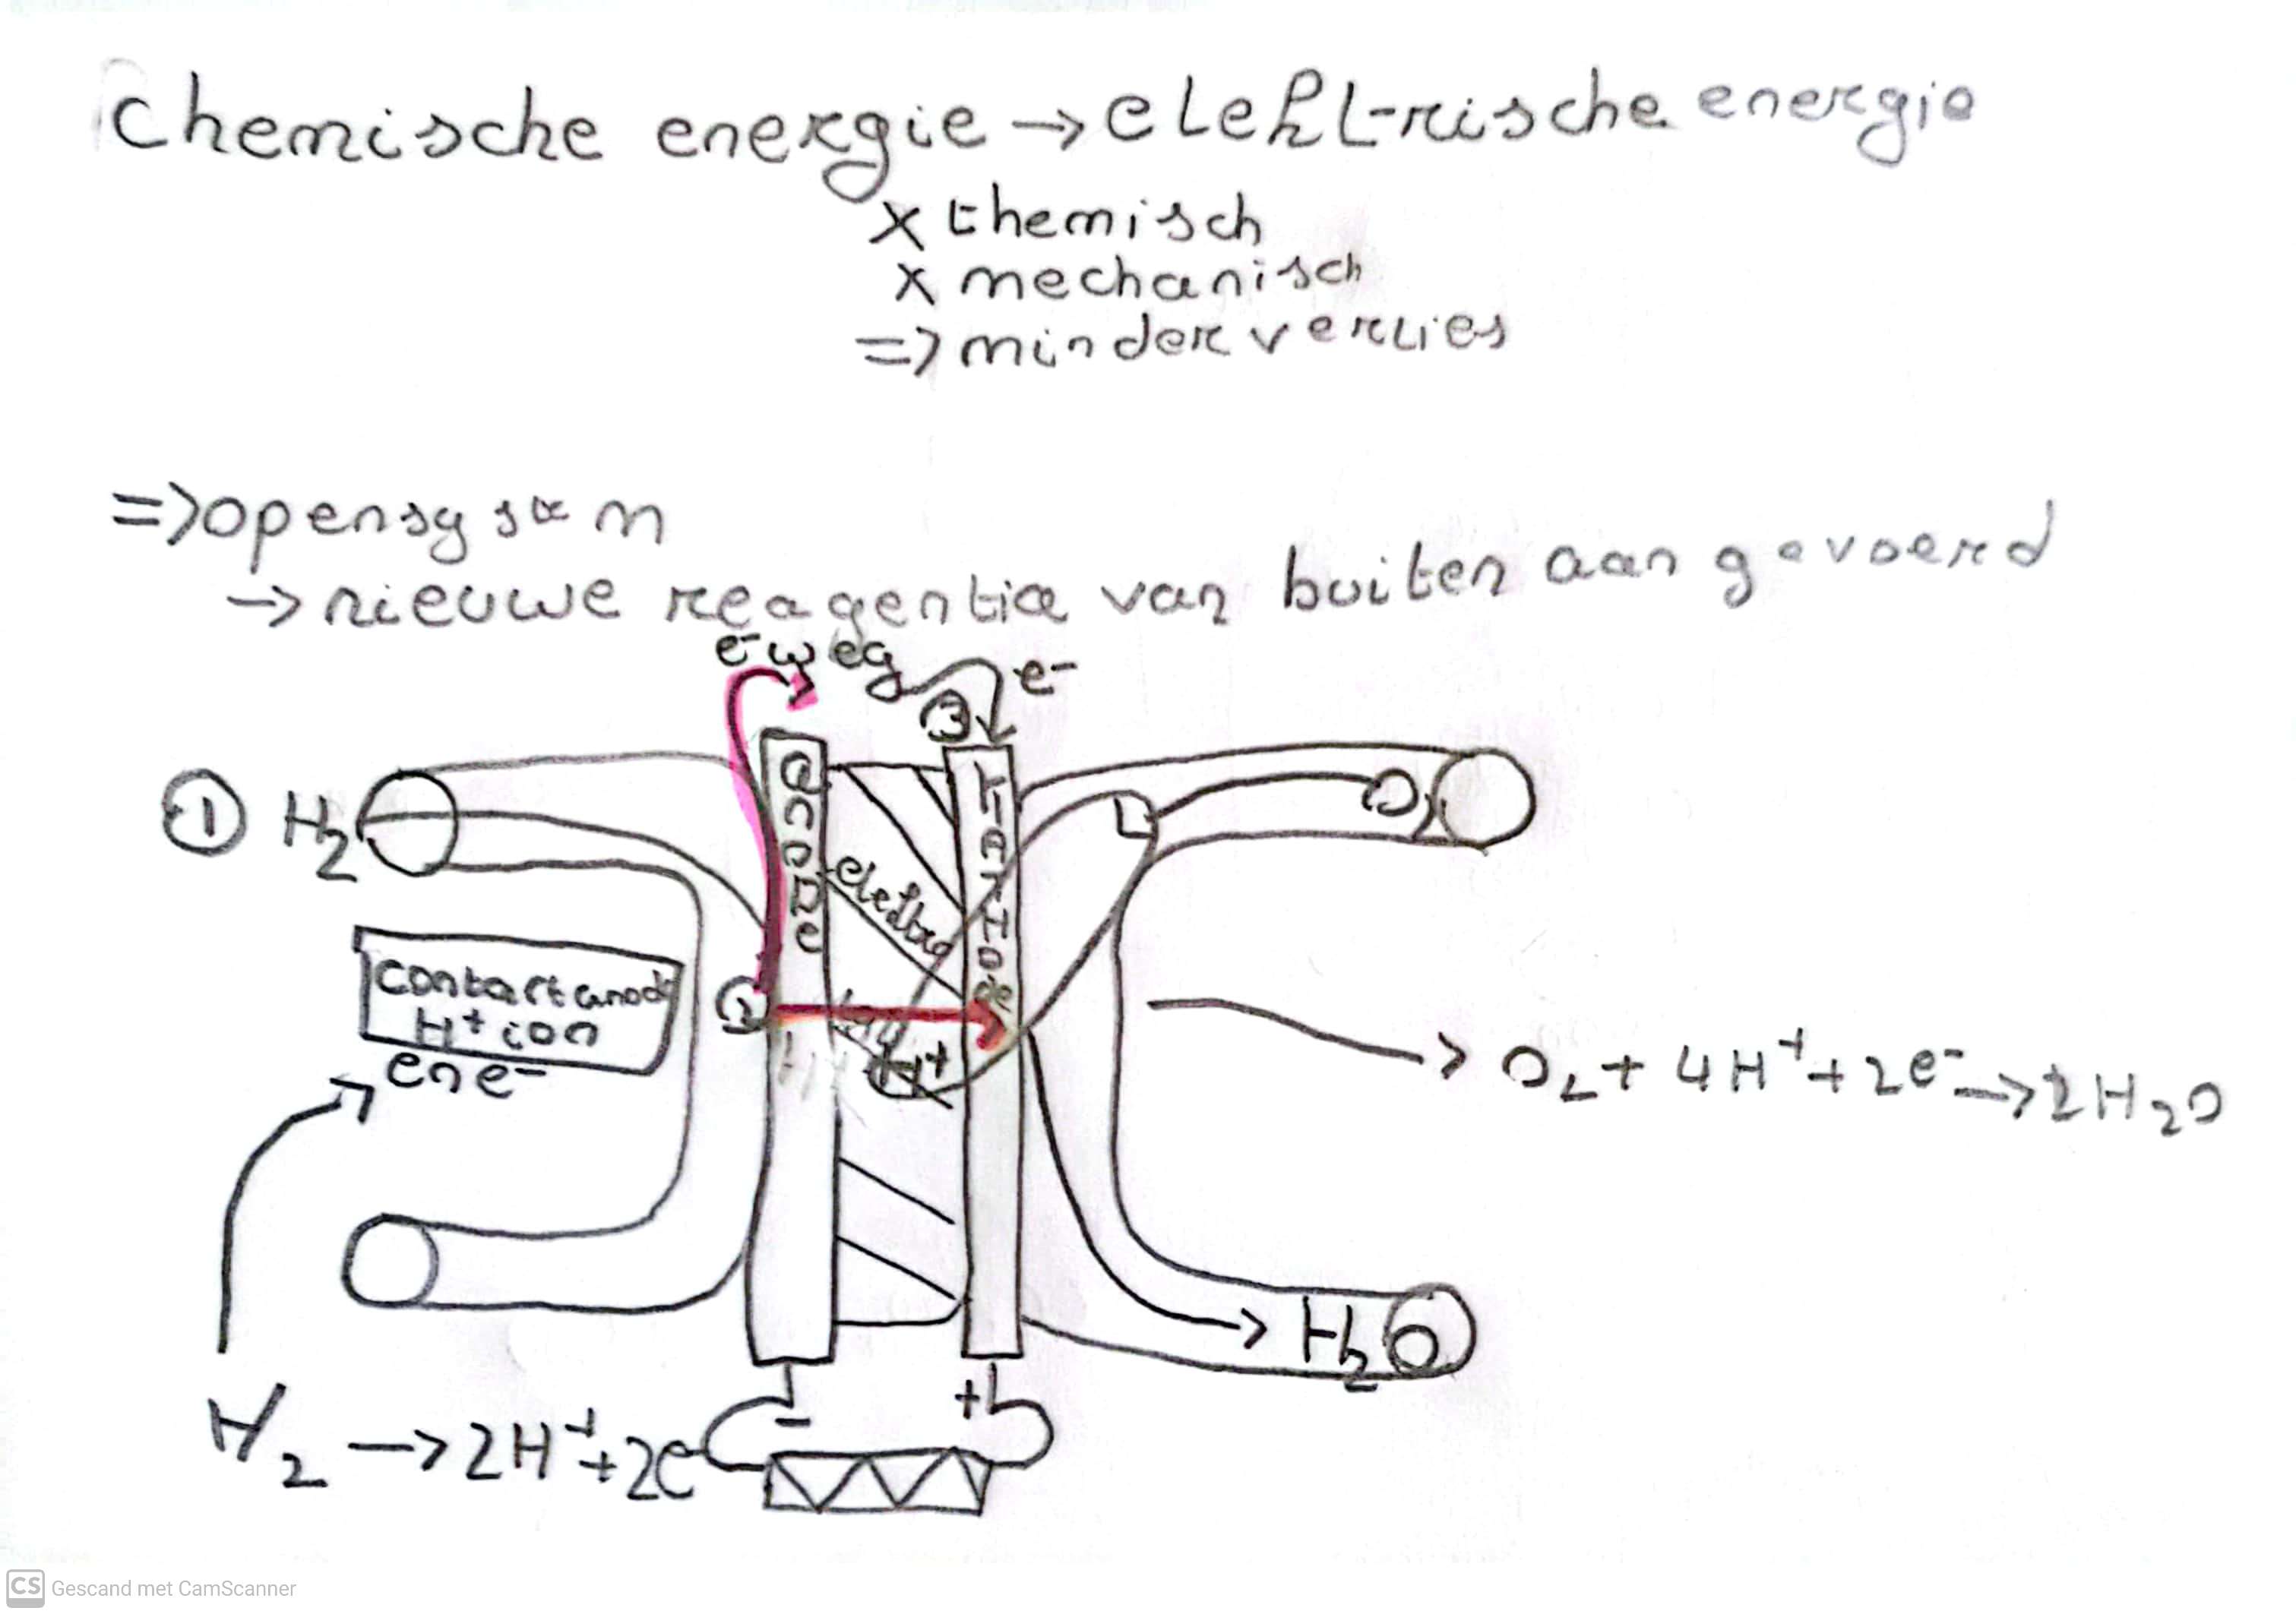 Chemische energie → elektrische energie
x themisch
x mechanisch
=> minder verlies
=> opensysteem
→ nieuwe reagentia van buiten aangevoerd
e- weg
e-
③
① H2
anode
kathode
O2
elektro
contact anode
H+ ion
en e-
②
H+
O2 + 4H+ + 2e- → 2H2O
H2O
- +
H2 → 2H+ + 2e-
CS Gescand met CamScanner